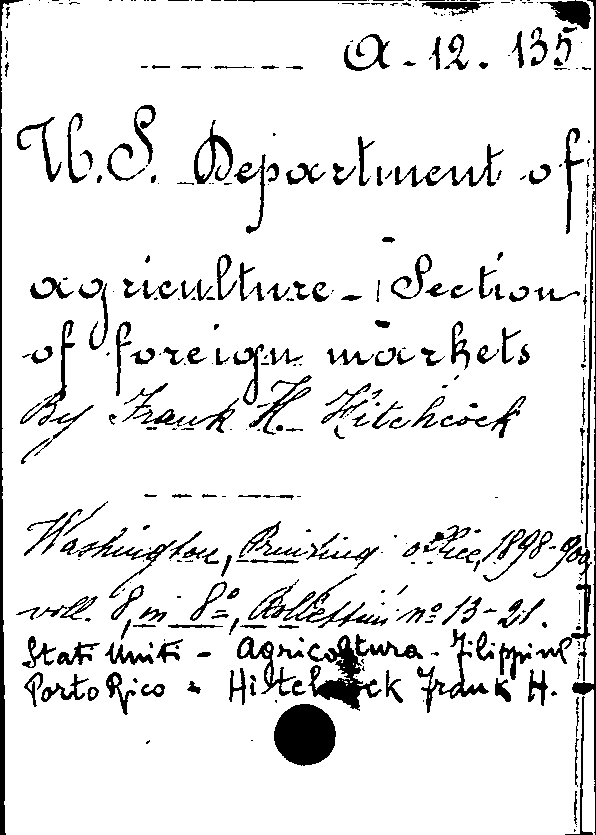 A. 12. 135
U.S. Department of
agriculture - Section
of foreign markets
By Frank H. Hitchcock
Washington, Printing office, 1898-900
voll. 8, in 8º, Bollettini nº 13-21.
Stati Uniti - Agricoltura - Filippine -
Porto Rico - Hiltchcock Frank H. -